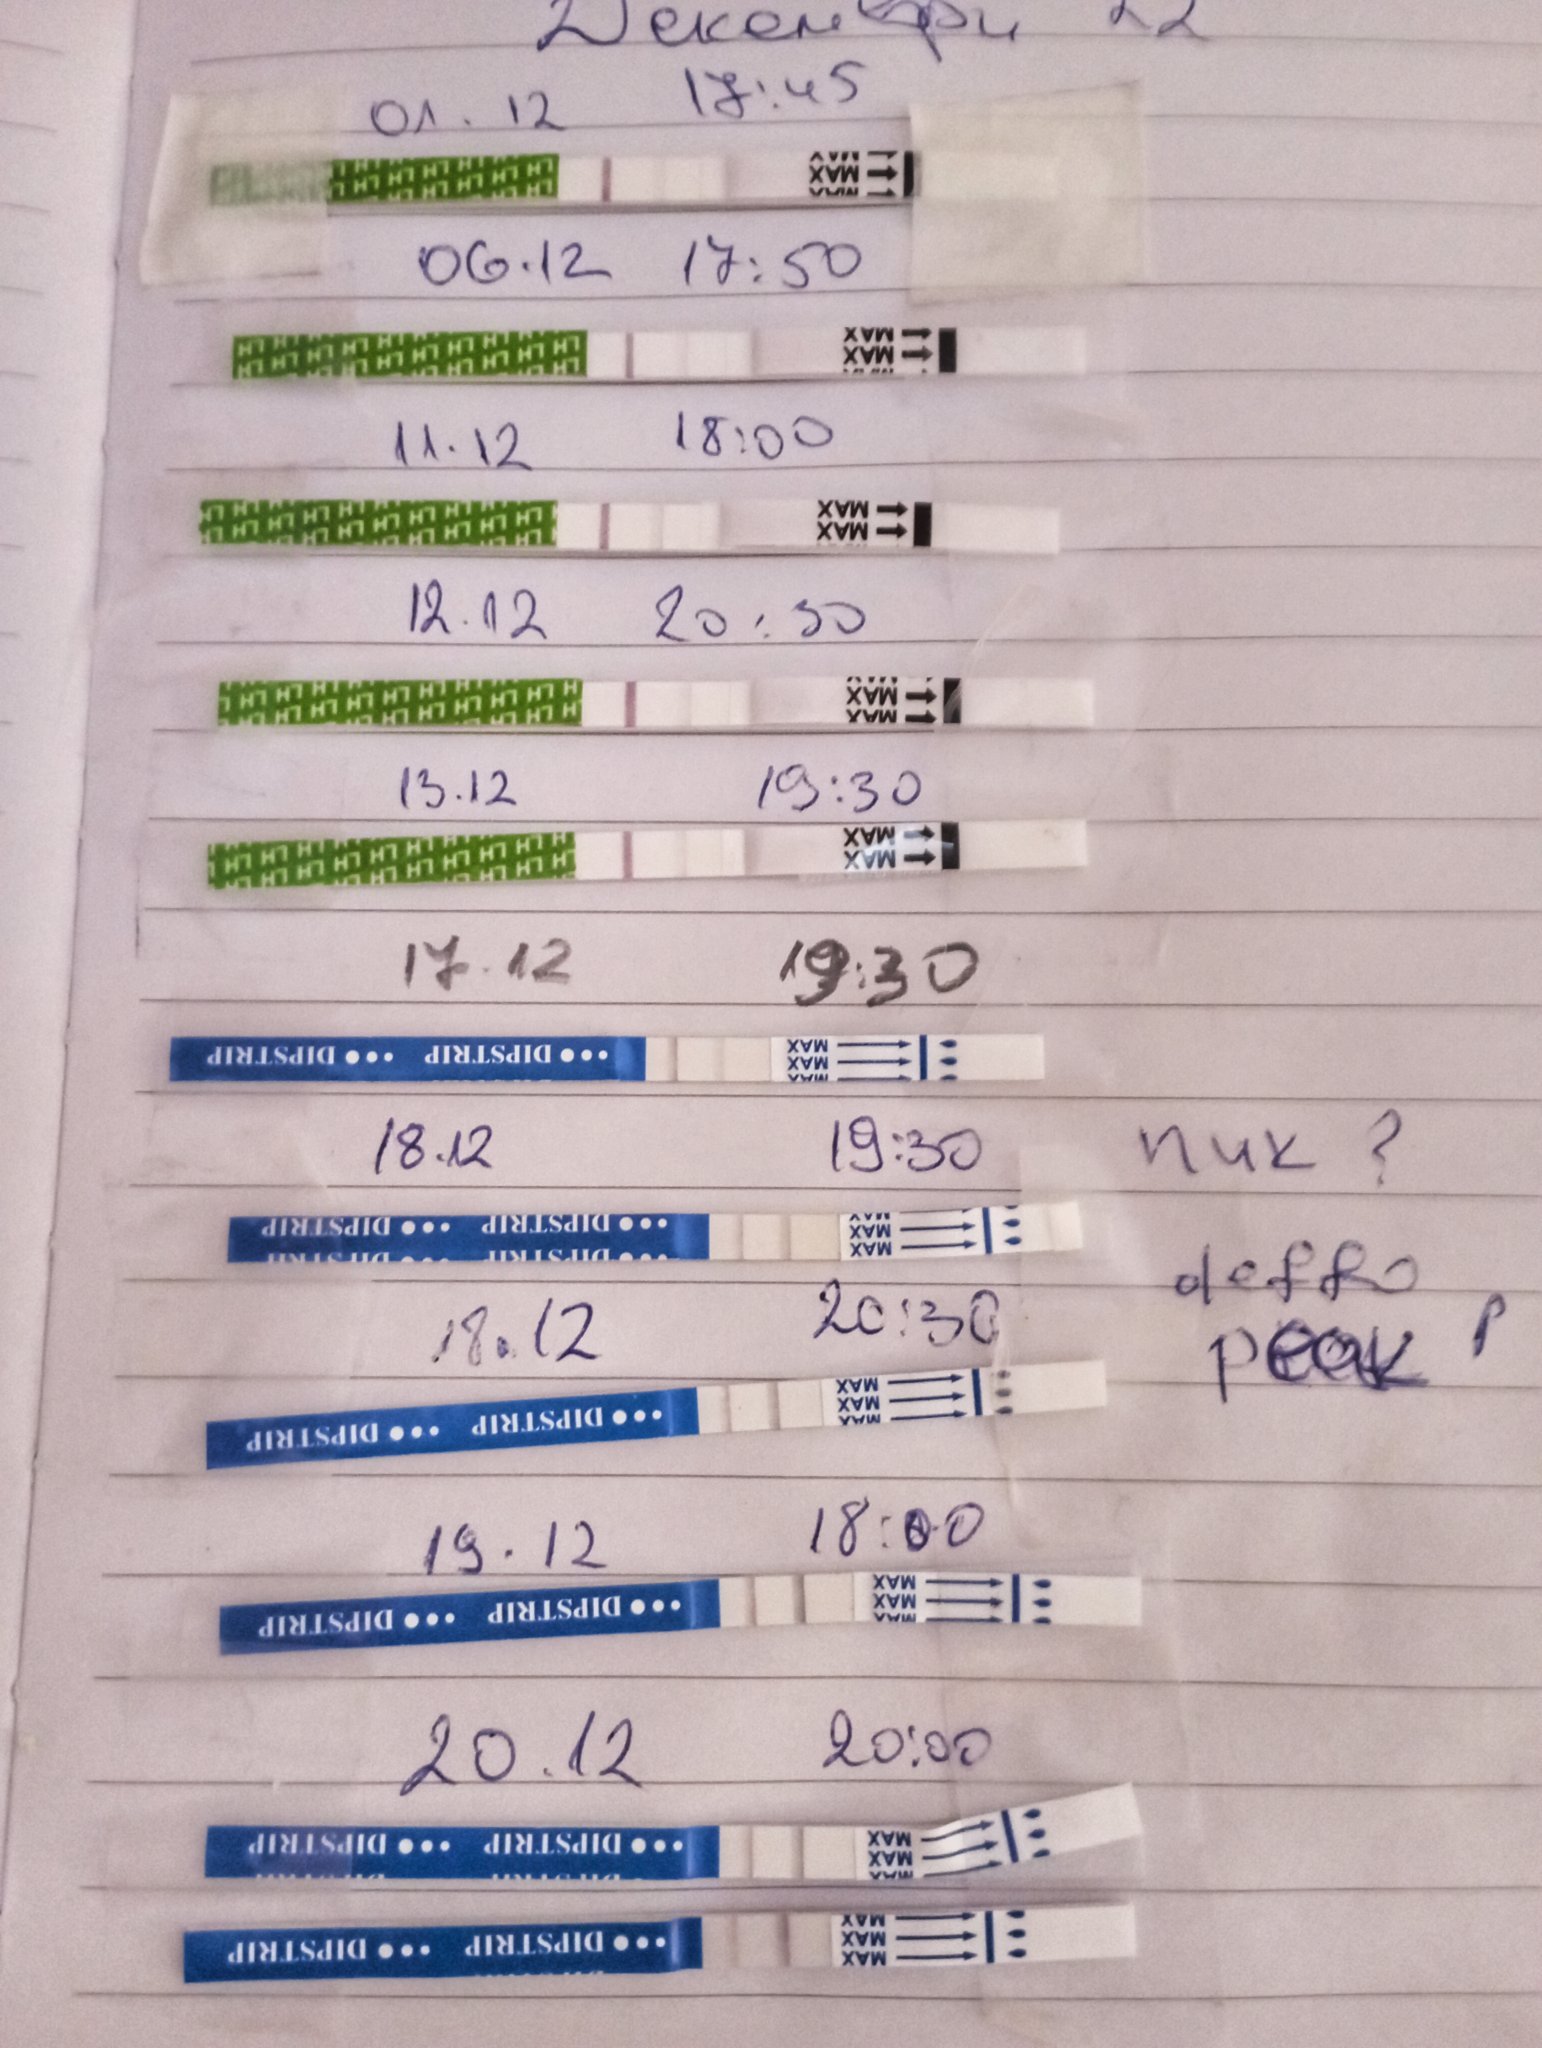 Декември 22
01.12 17:45
LH LH LH LH LH LH
MAX
MAX
MAX
06.12 17:50
LH LH LH LH LH LH LH LH
MAX
MAX
11.12 18:00
LH LH LH LH LH LH LH LH
MAX
MAX
12.12 20:30
LH LH LH LH LH LH LH LH
MAX
MAX
13.12 19:30
LH LH LH LH LH LH LH LH
MAX
MAX
17.12 19:30
DIPSTRIP ••• DIPSTRIP •••
MAX
MAX
MAX
18.12 19:30 пик ?
DIPSTRIP ••• DIPSTRIP •••
MAX
MAX
MAX
deffo
18.12 20:30 peak
DIPSTRIP ••• DIPSTRIP •••
MAX
MAX
MAX
19.12 18:00
DIPSTRIP ••• DIPSTRIP •••
MAX
MAX
MAX
20.12 20:00
DIPSTRIP ••• DIPSTRIP •••
MAX
MAX
MAX
DIPSTRIP ••• DIPSTRIP •••
MAX
MAX
MAX